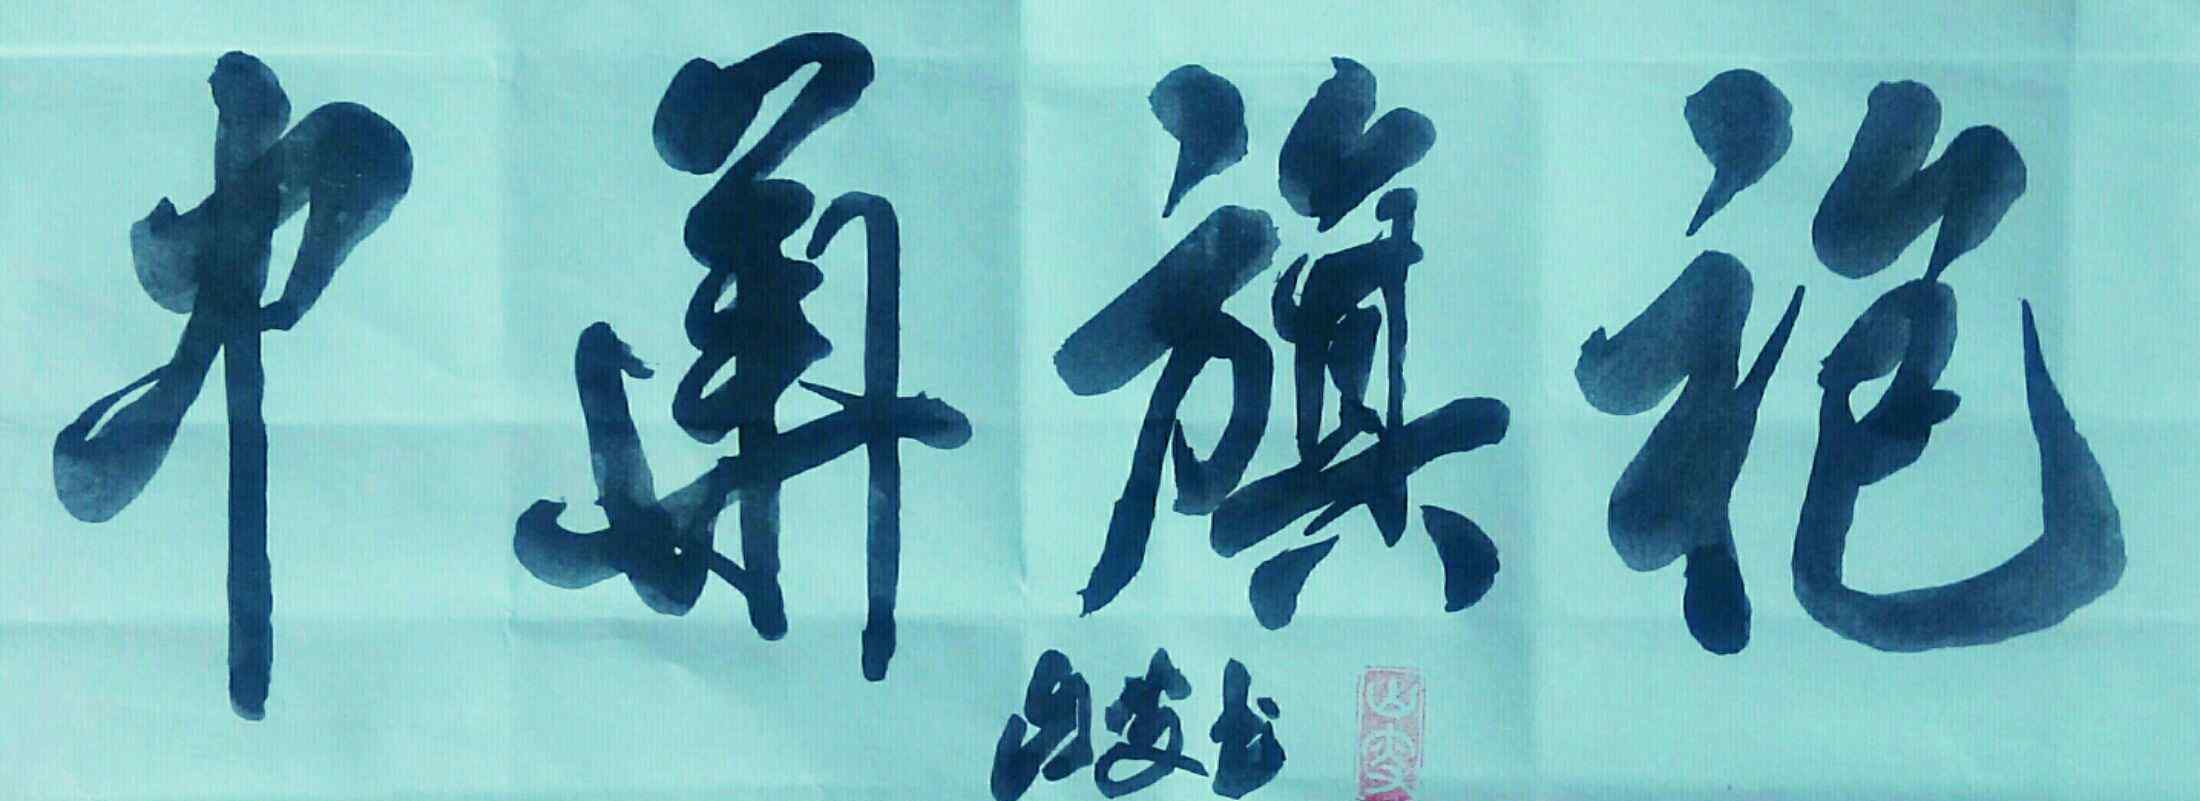 中華旗袍